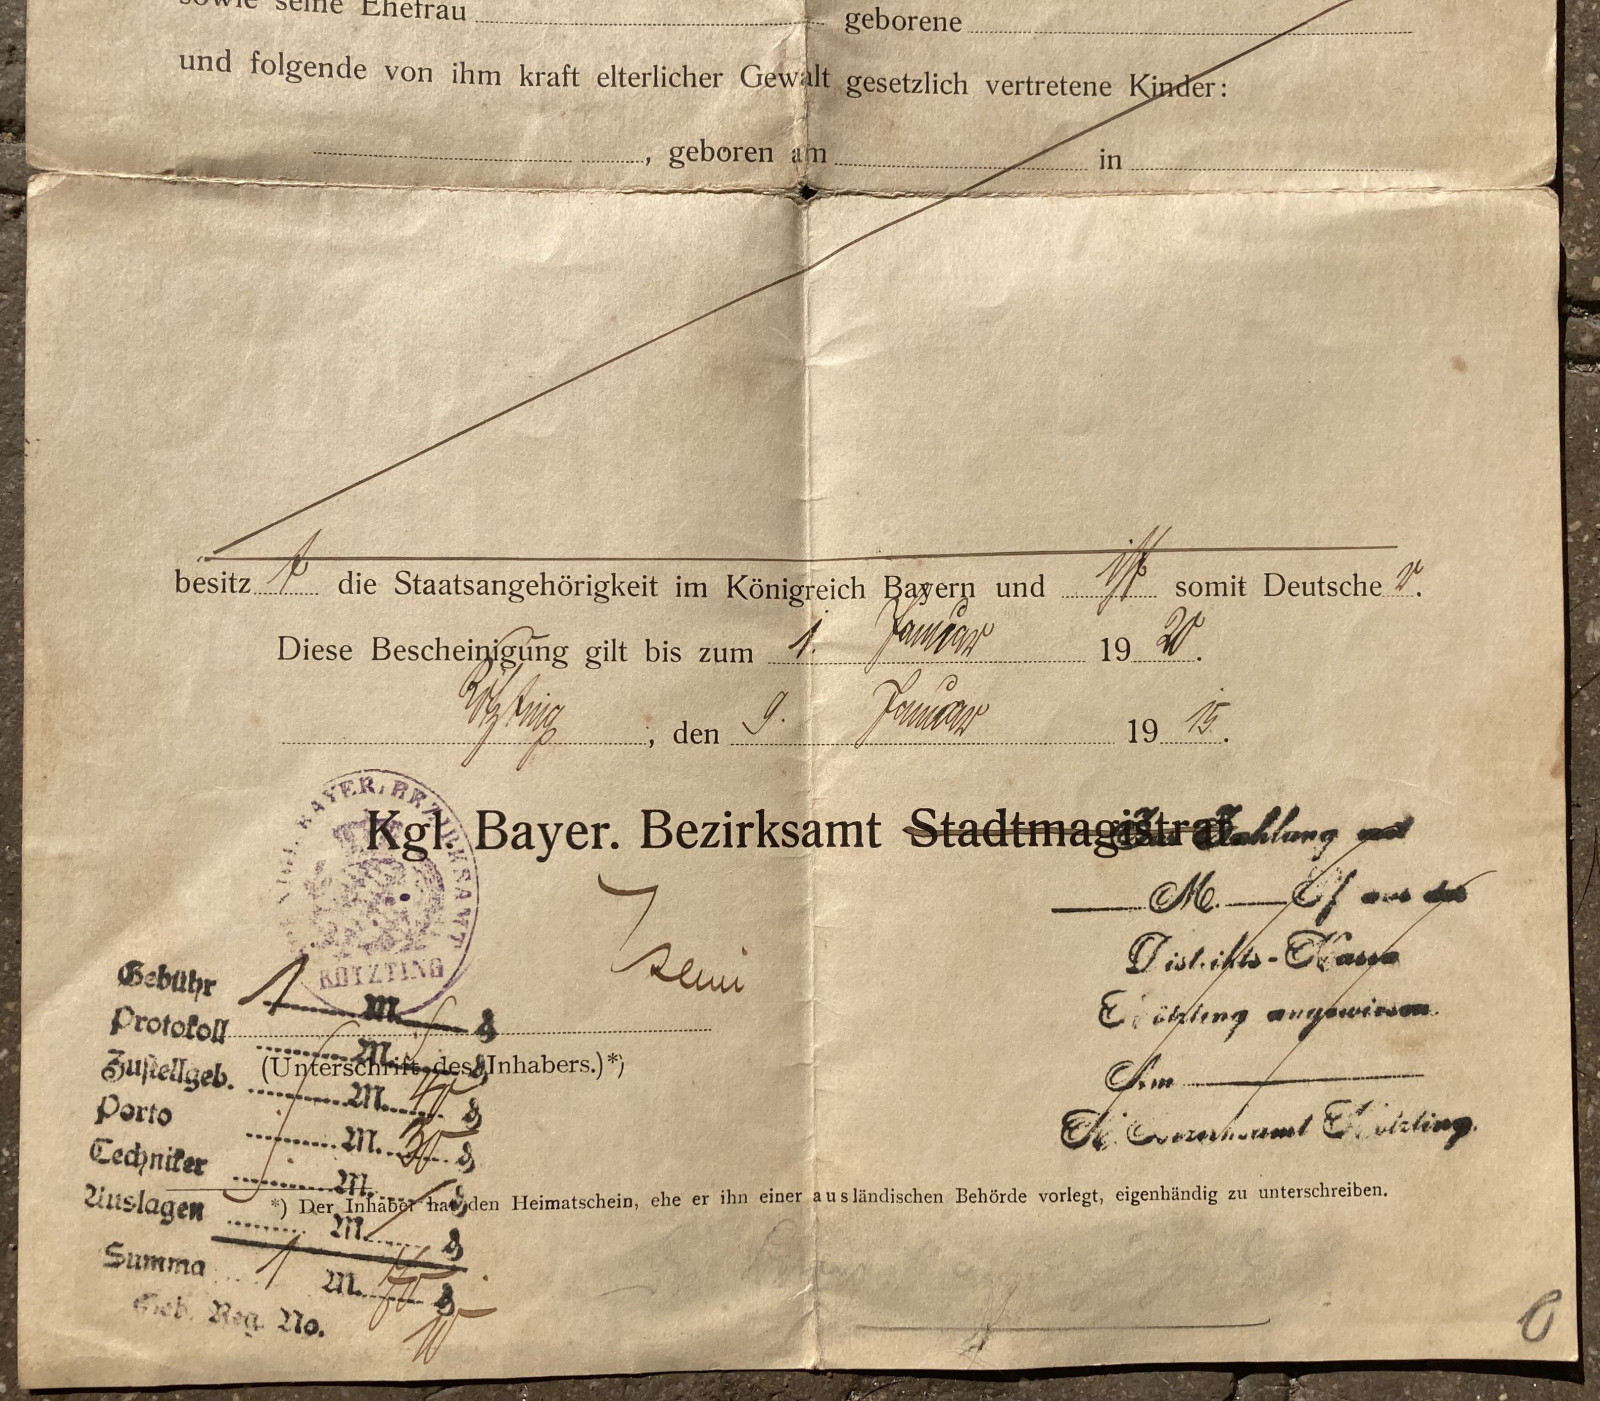 sowie seine Ehefrau geborene
und folgende von ihm kraft elterlicher Gewalt gesetzlich vertretene Kinder:
, geboren am in
besitzt die Staatsangehörigkeit im Königreich Bayern und ist somit Deutscher.
Diese Bescheinigung gilt bis zum 1. Januar 1920.
Kötzting, den 9. Januar 1915.
Kgl. Bayer. Bezirksamt Stadtmagistrat
BAYER. BEZIRKSAMT
KÖTZTING
Zahlung mit
M. aus der
Distrikts-Kassa
Kötzting angewiesen.
Am
K. Bezirksamt Kötzting.
Gebühr 1 M.
Protokoll M.
(Unterschrift des Inhabers.)*)
Zustellgeb. M.
Porto M.
Techniker M.
*) Der Inhaber hat den Heimatschein, ehe er ihn einer ausländischen Behörde vorlegt, eigenhändig zu unterschreiben.
Auslagen M.
Summa 1 M.
Geb. Reg. No.